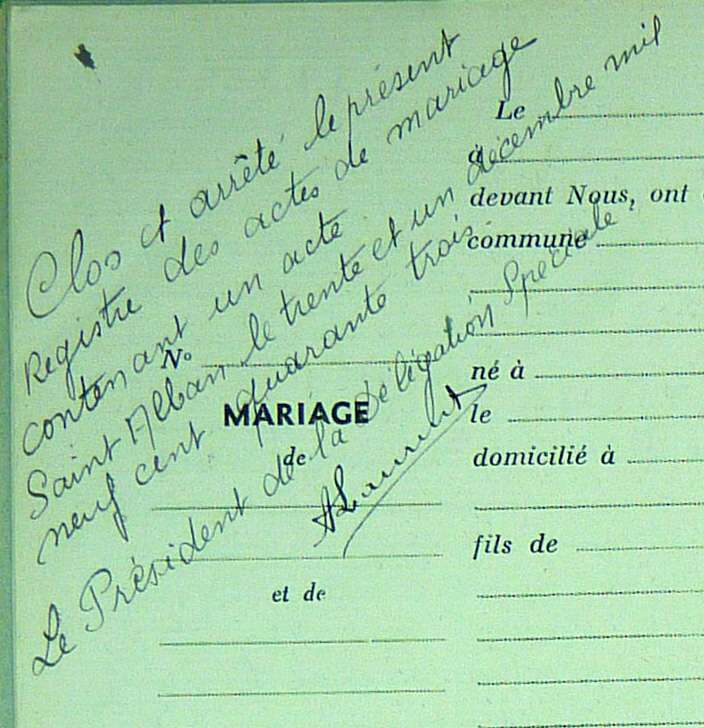 Clos et arrêté le présent
Registre des actes de mariage
contenant un acte.
Saint Alban le trente et un décembre mil
neuf cent quarante trois.
Le Président de la Délégation Spéciale
ALaurent
N°
MARIAGE
de
et de
Le
à
devant Nous, ont
commune
né à
le
domicilié à
fils de